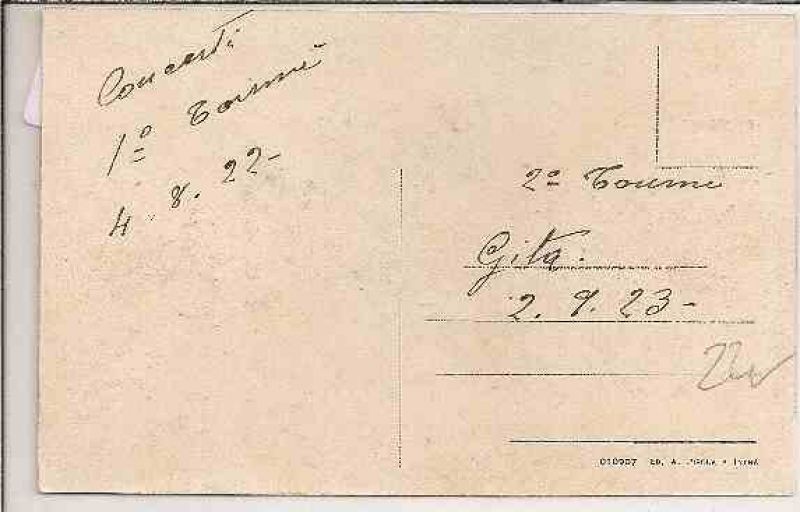 Concerti
1º Tournè
4.8.22-
2º Tournè
Gita:
2.9.23-
010907 ED. A.